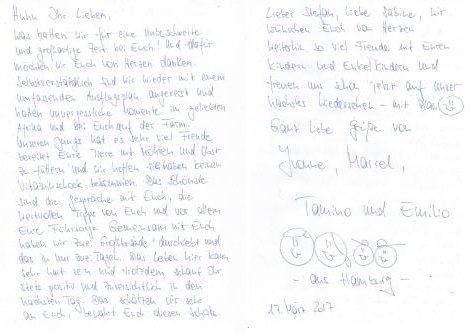 Huhu Ihr Lieben,
was hatten wir für eine unbeschreibliche
und großartige Zeit bei Euch! Und dafür
möchten wir Euch von Herzen danken.
Selbstverständlich sind wir wieder mit einem
umfassenden Ausflugsplan angereist und
hatten unvergessliche Momente im geliebten
Afrika und bei Euch auf der Farm.
Unseren Jungs hat es sehr viel Freude
bereitet Eure Tiere mit Möhren und Obst
zu füttern und wir hoffen sie haben keinen
Vitaminschock bekommen. Das Schönste
sind die Gespräche mit Euch, die
wertvollen Tipps von Euch und vor allem
Eure Fürsorge. Gemeinsam mit Euch
haben wir zwei Großbrände durchlebt und
das in nur zwei Tagen. Das Leben hier kann
sehr hart sein und trotzdem schaut Ihr
stets positiv und zuversichtlich in den
nächsten Tag. Das schätzen wir sehr
an Euch, bewahrt Euch diesen Schatz.
Lieber Stefan, liebe Sabine, wir
wünschen Euch von Herzen
weiterhin so viel Freude mit Euren
Kindern und Enkelkindern und
freuen uns schon jetzt auf unser
nächstes Wiedersehen - mit
Ganz liebe Grüße von
Yvonne, Marcel,
Tamino und Emilio
- aus Hamburg -
17. März 2017